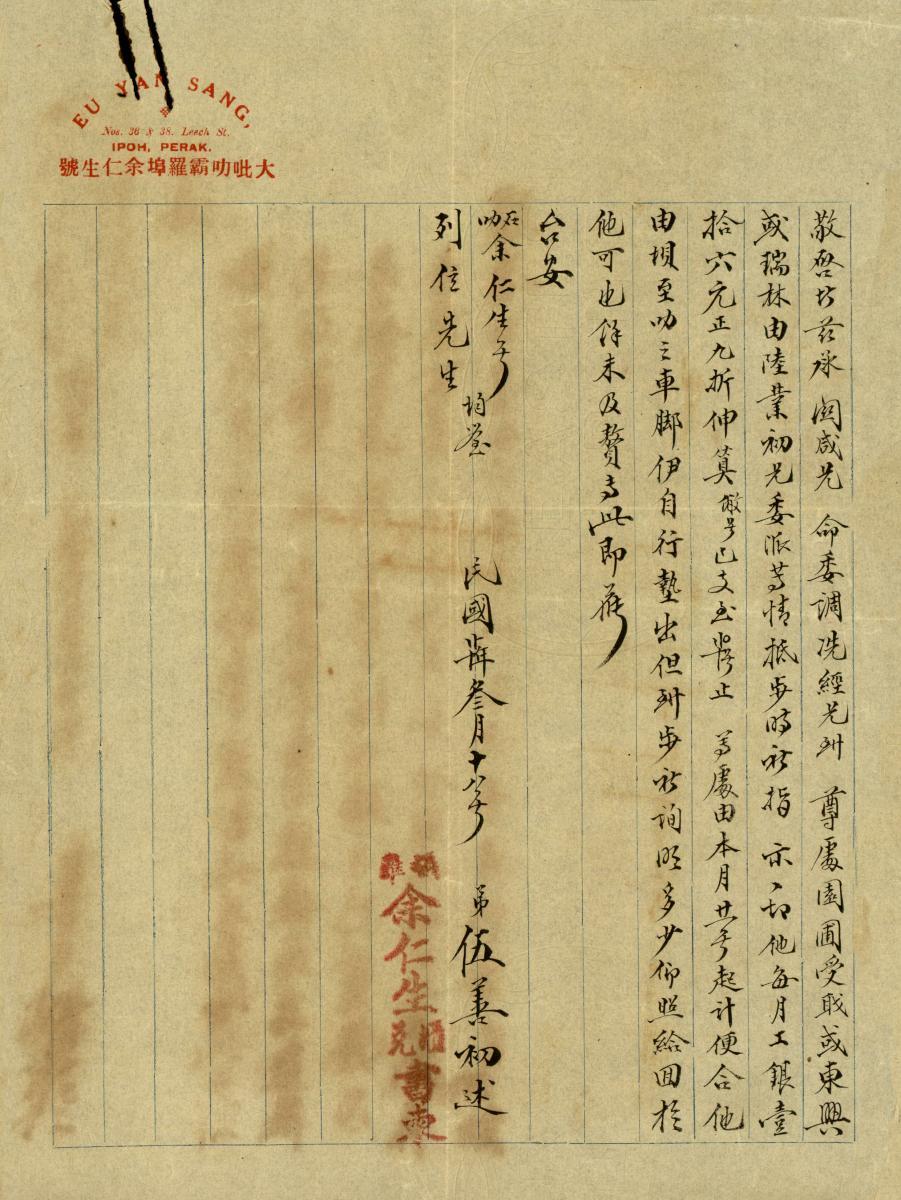 EU YAN SANG,
Nos. 36 & 38. Leech St.
IPOH, PERAK.
大吡叻霸羅埠余仁生號
敬啓者茲承 闰咸兄 命委調冼經兄到 尊處園圃受職或東興
或瑞林由陸業初兄委派等情抵步時祈指示一切他每月工銀壹
拾六元正九折伸算 敝号已支至 止 尊處由本月廿一号起計便合他
由埧至叻之車脚伊自行墊出但到步祈詢明多少仰照給回於
他可也餘未及贅专此即候
台安
石叻余仁生号
列位先生 均鑒
民國 年叁月十八号 弟伍善初述
余仁生 書柬